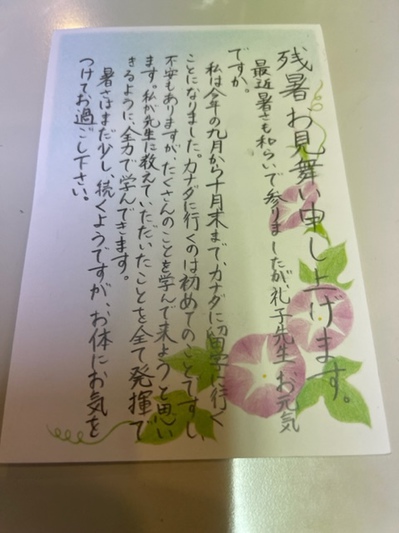 残暑お見舞い申し上げます。
最近暑さも和らいで参りましたが礼子先生お元気
ですか。
私は今年の九月から十月末まで、カナダに留学に行く
ことになりました。カナダに行くのは初めてのことですし
不安もありますが、たくさんのことを学んで来ようと思い
ます。私が先生に教えていただいたことを全て発揮で
きるように、全力で学んできます。
暑さはまだ少し続くようですが、お体にお気を
つけてお過ごし下さい。